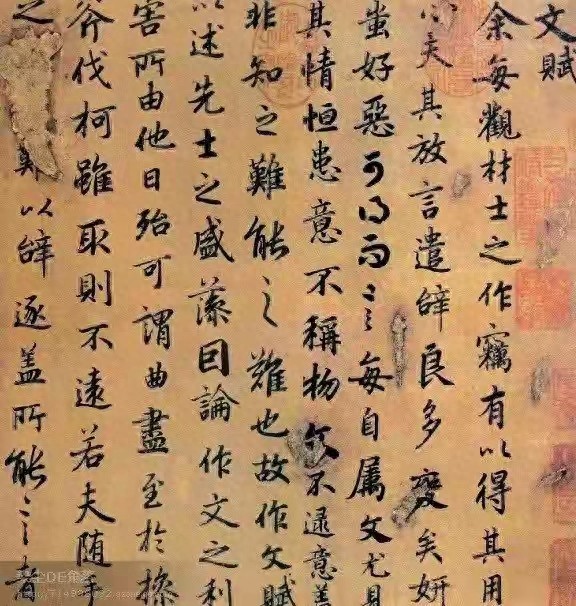 文賦
余每觀材士之作竊有以得其用
心夫其放言遣辭良多變矣妍
蚩好惡可得而言每自屬文尤見
其情恒患意不稱物文不逮意蓋
非知之難能之難也故作文賦
以述先士之盛藻因論作文之利
害所由他日殆可謂曲盡至於操
斧伐柯雖取則不遠若夫随手
之難以辭逐盖所能言者